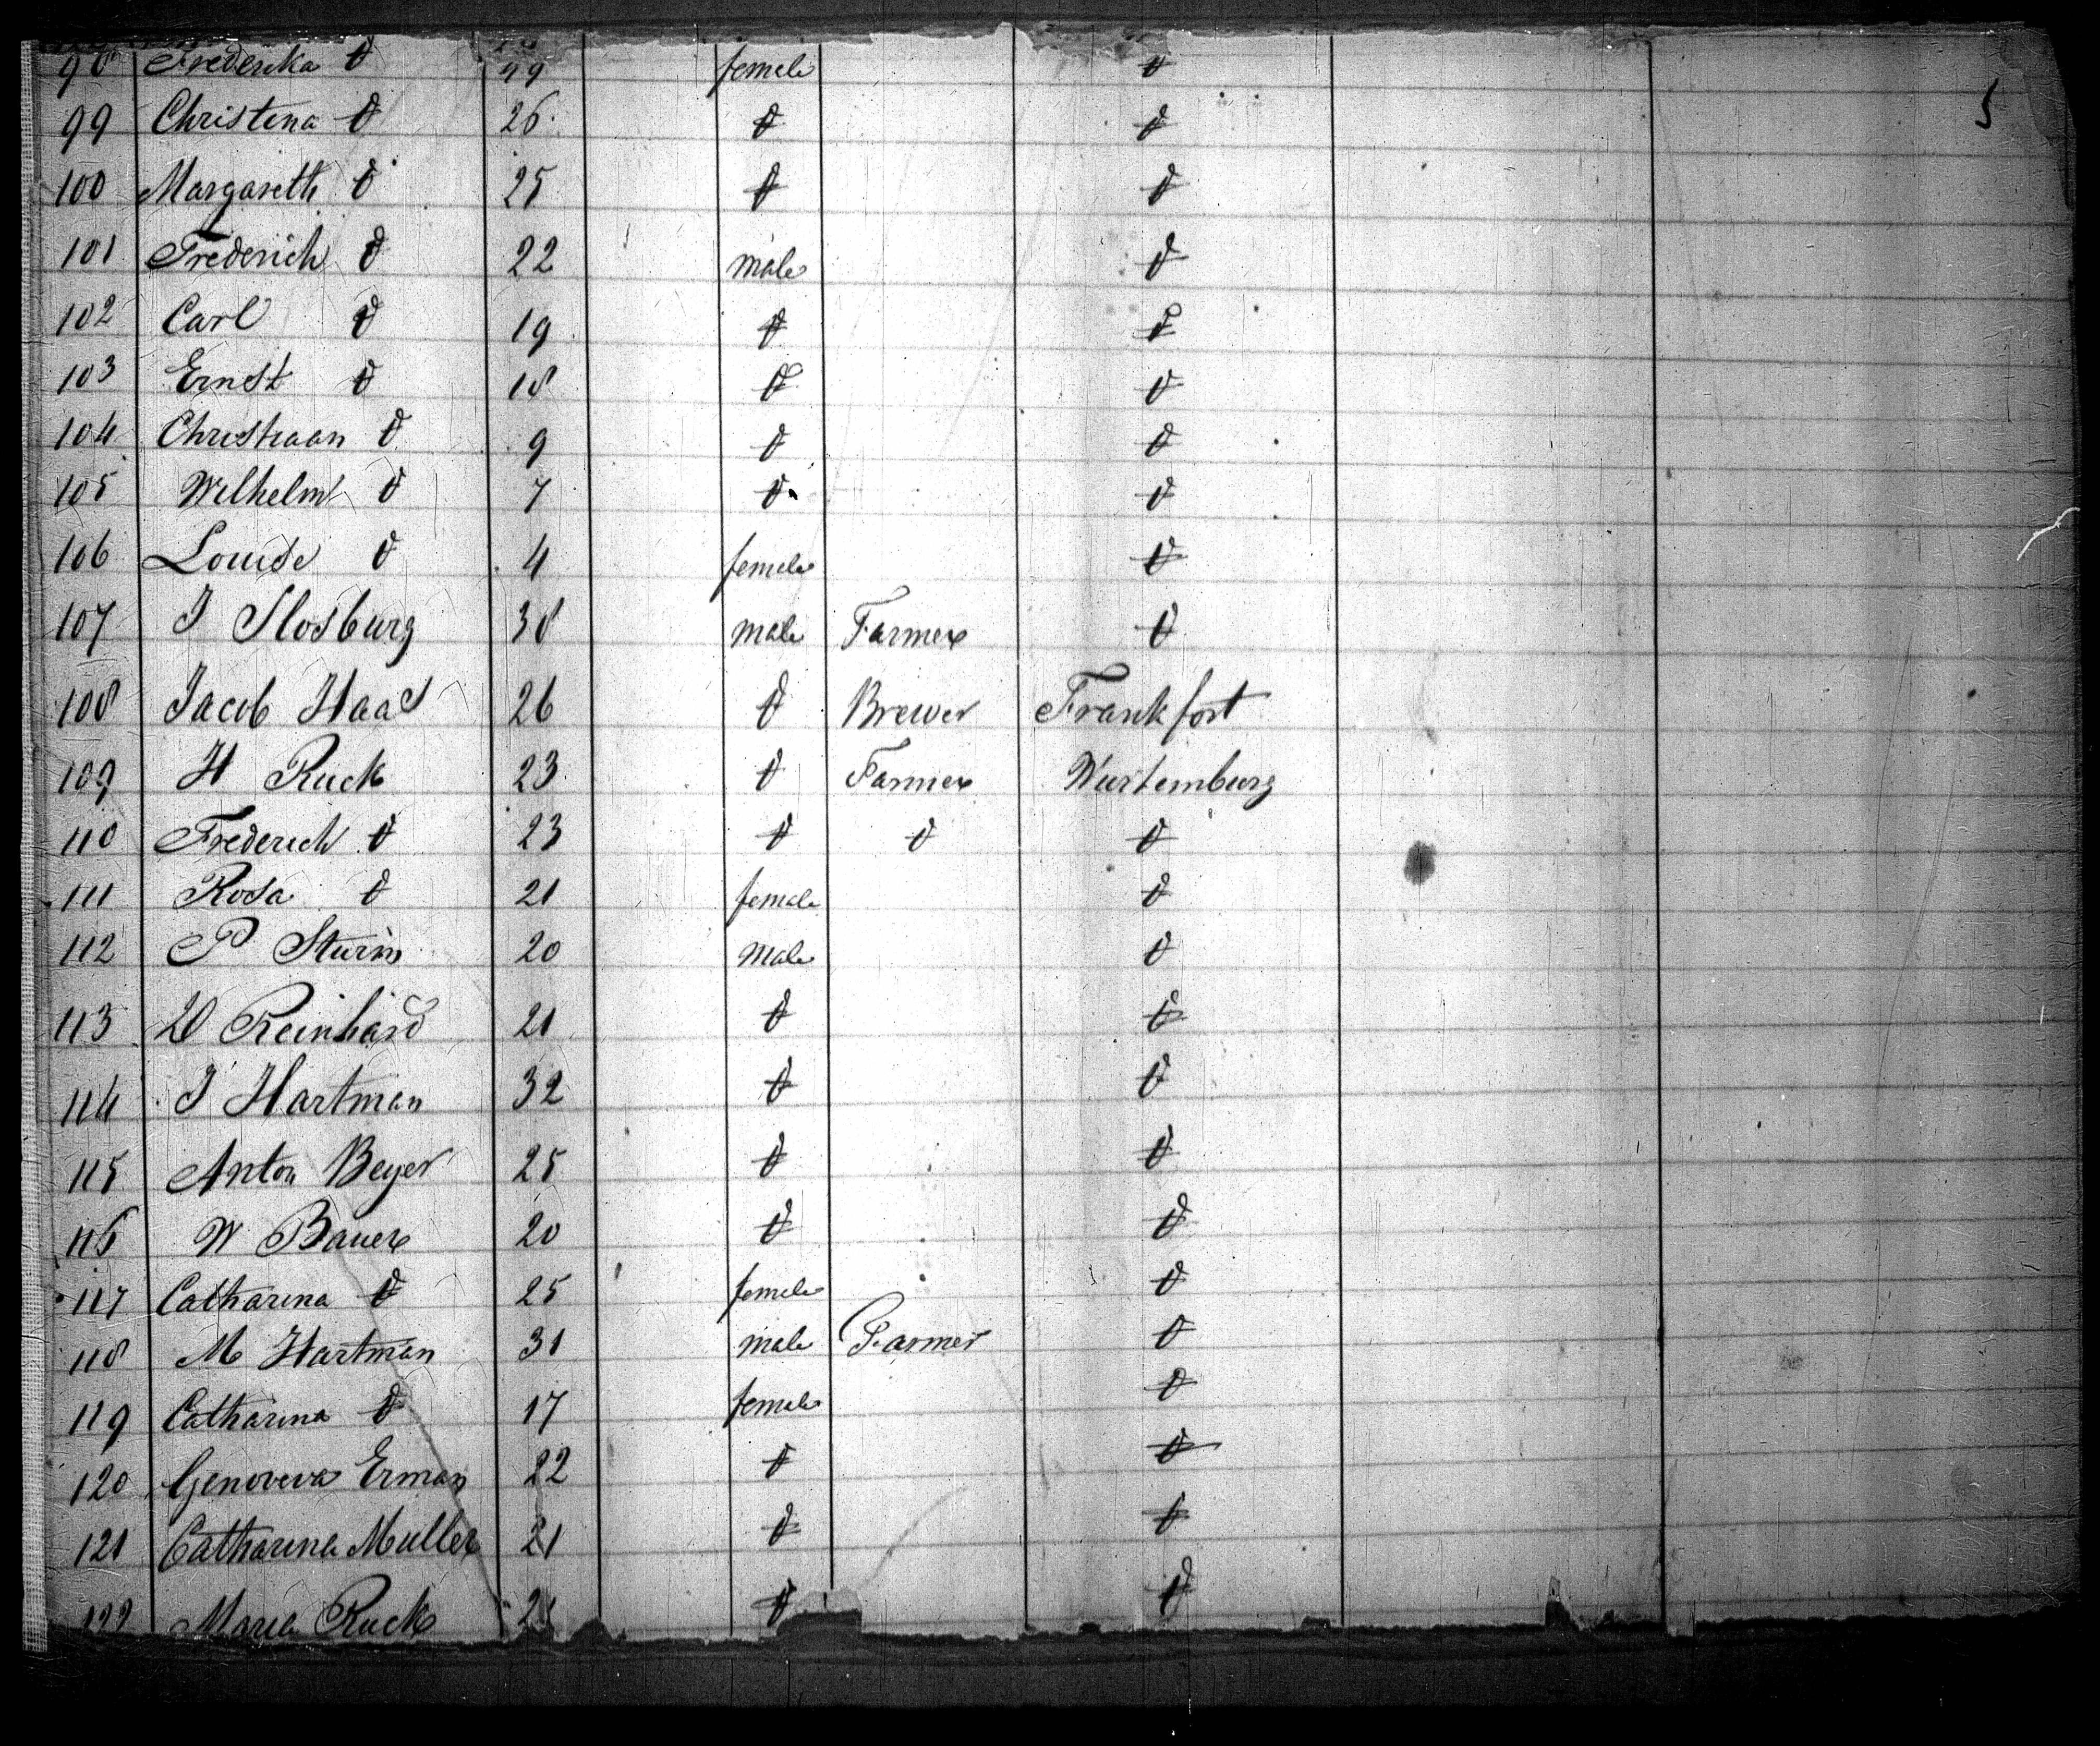 98 Frederika do 49 female do
99 Christina do 26 do do
100 Margareth do 25 do do
101 Frederich do 22 male do
102 Carl do 19 do do
103 Ernst do 18 do do
104 Christiaan do 9 do do
105 Wilhelm do 7 do do
106 Louise do 4 female do
107 J Slosburg 38 male Farmer do
108 Jacob Haas 26 do Brewer Frankfort
109 H Ruck 23 do Farmer Wurtemburg
110 Frederich do 23 do do do
111 Rosa do 21 female do
112 P Sturm 20 male do
113 Reinhard 21 do do
114 J Hartman 32 do do
115 Anton Beyer 25 do do
116 W Bauer 20 do do
117 Catharina do 25 female do
118 M Hartman 31 male Farmer do
119 Catharina do 17 female do
120 Genoveva Erman 22 do do
121 Catharina Muller 21 do do
122 Maria Ruck do do